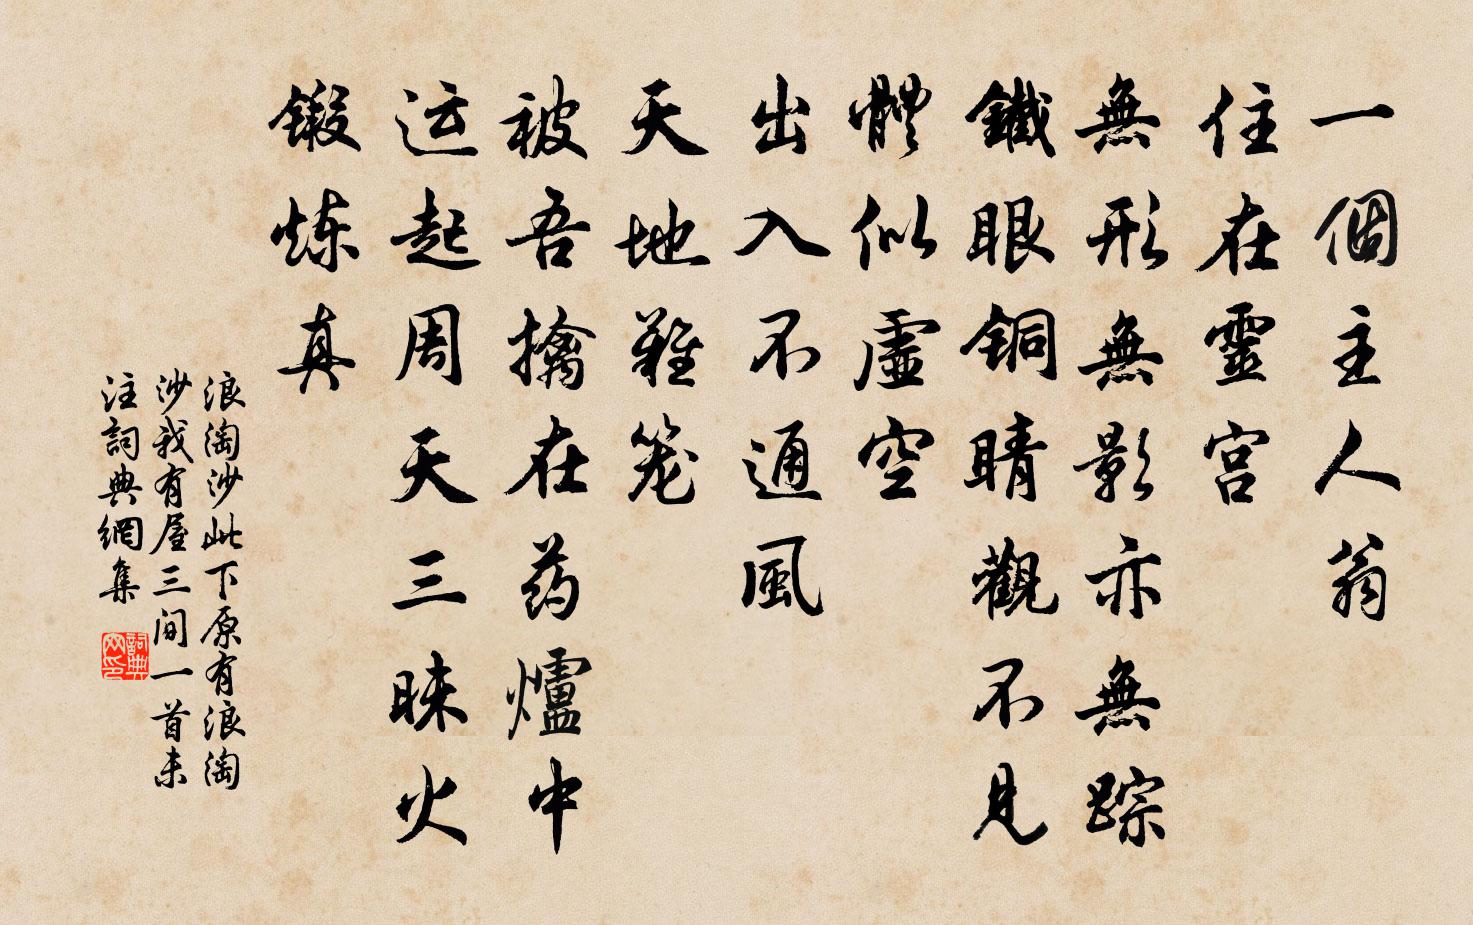 一個主人翁
住在靈宫
無形無影亦無踪
鐵眼銅睛觀不見
體似虛空
出入不通風
天地難笼
被吾擒在药爐中
运起周天三昧火
鍛炼真
浪淘沙此下原有浪淘
沙我有屋三间一首未
注詞典網集
詞典网印